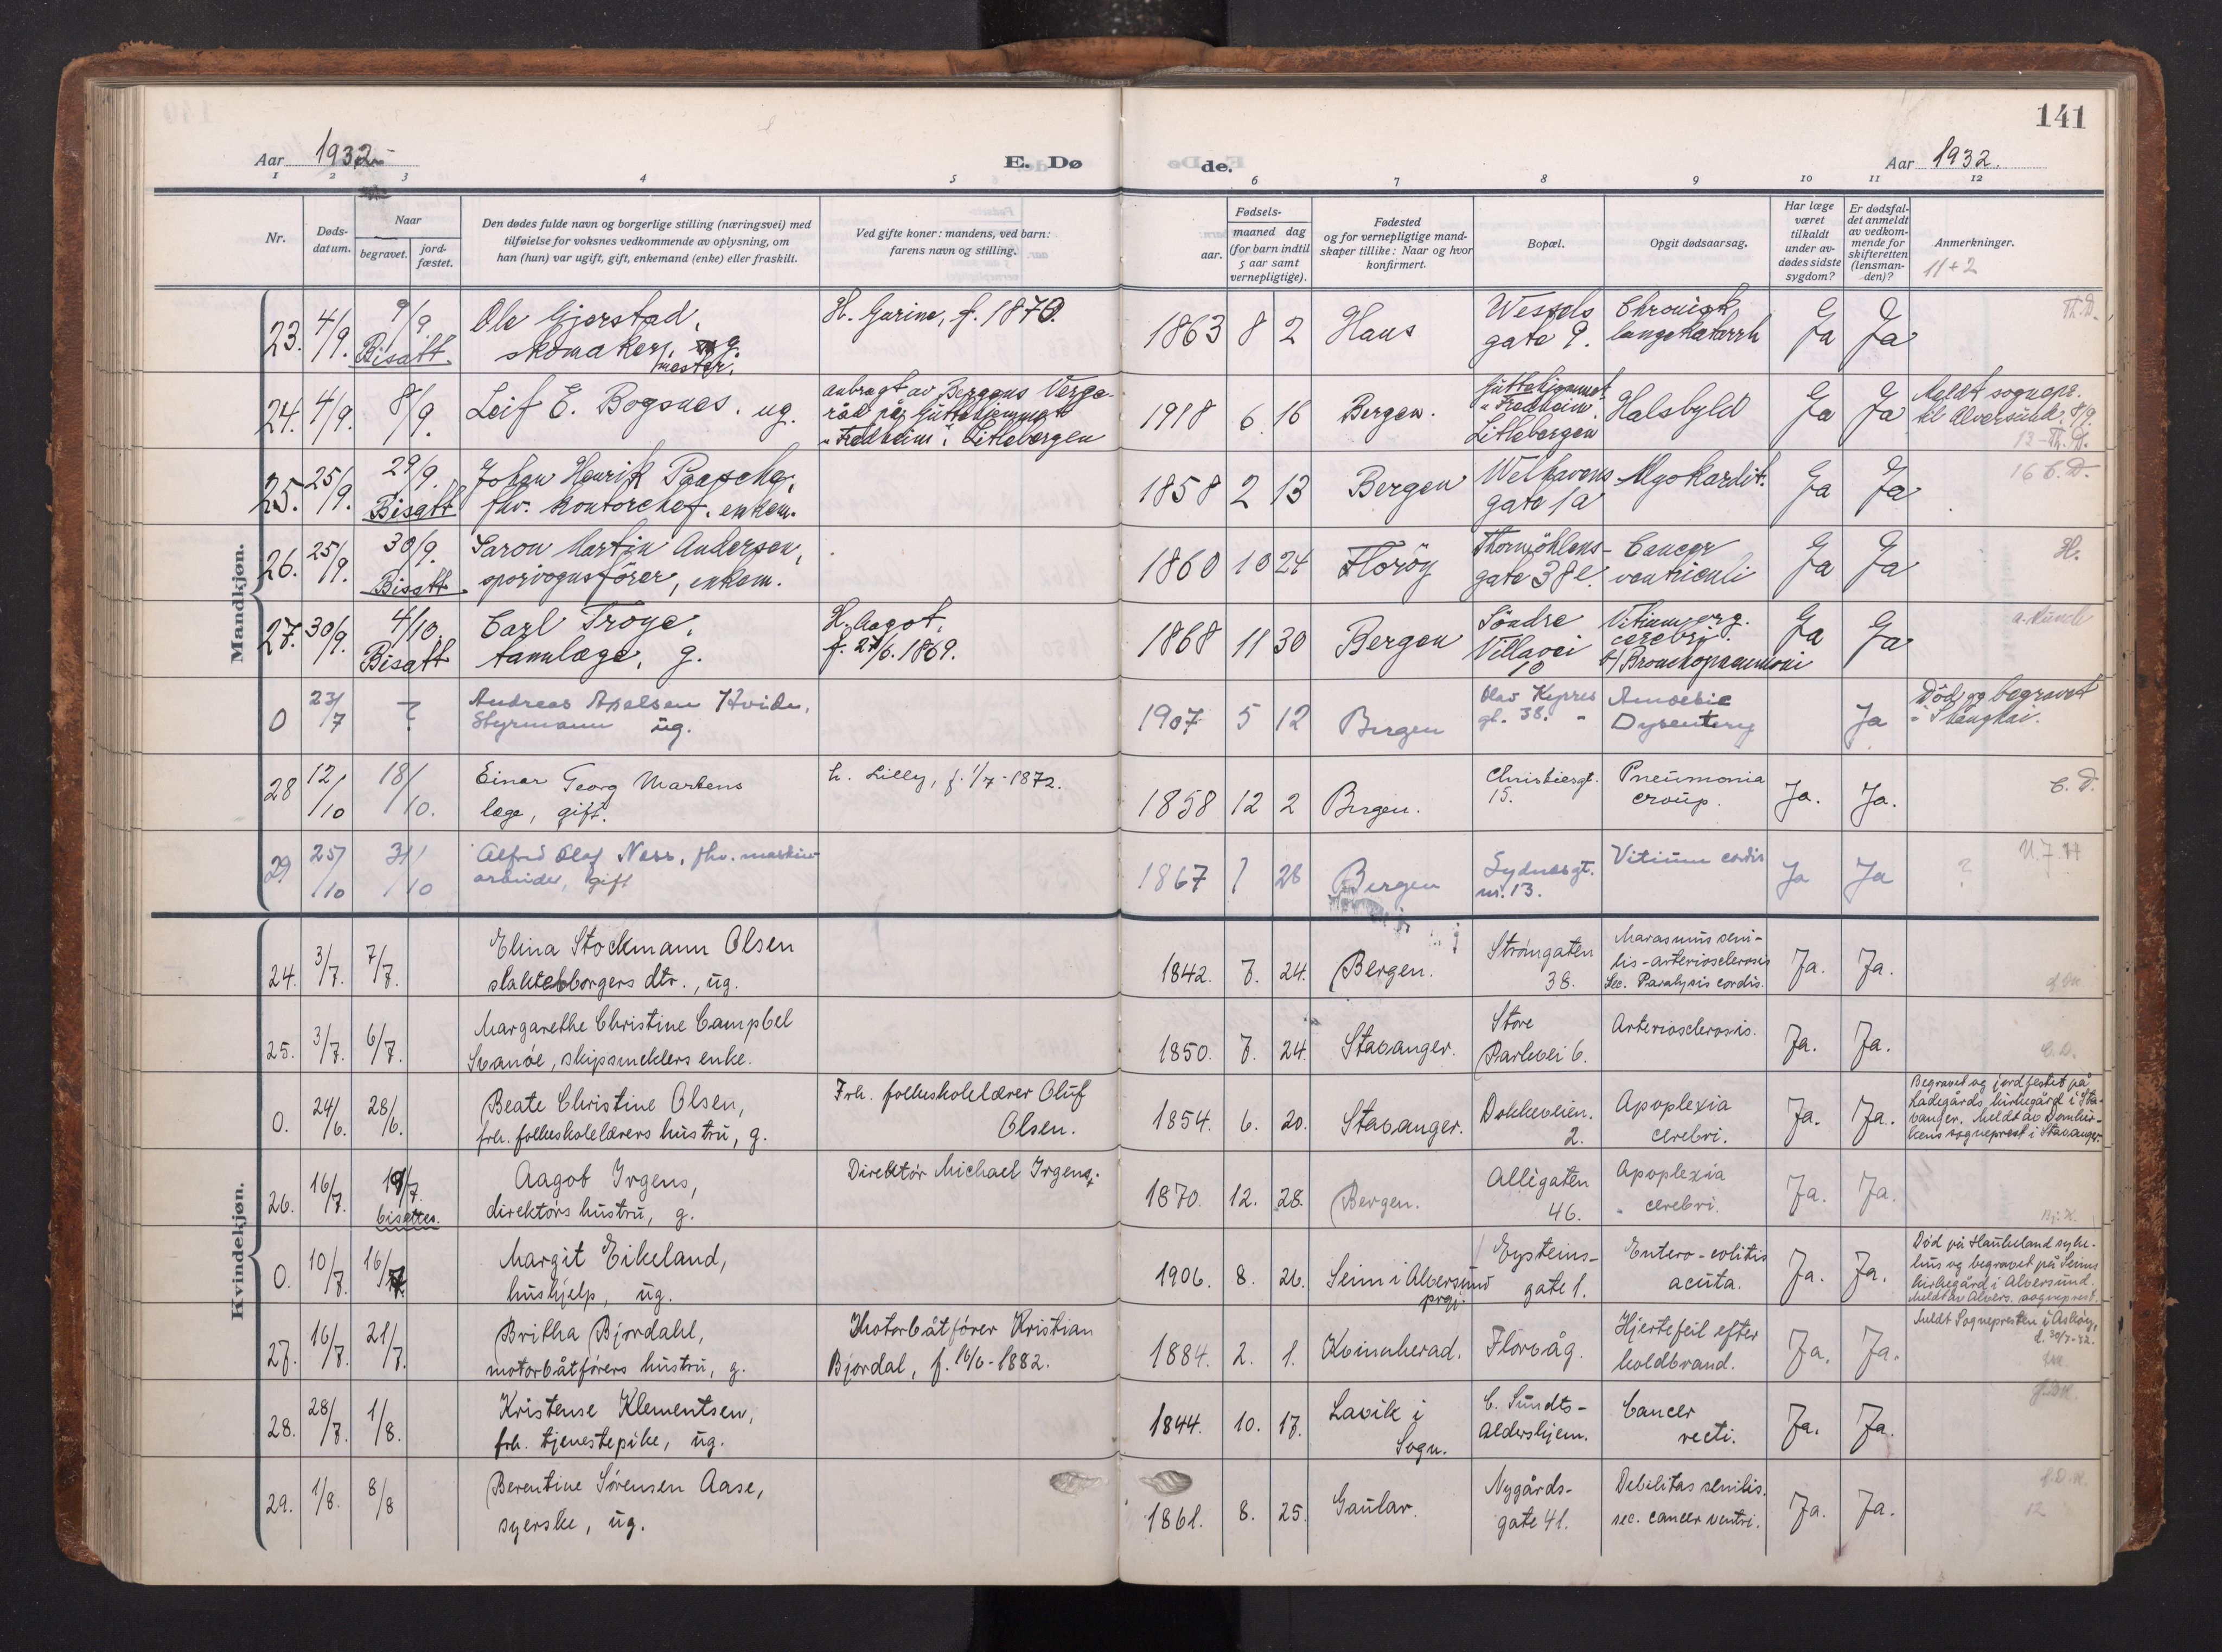 141
Aar 1932
E. Dø
de.
Aar 1932.
1 2 3 4 5 6 7 8 9 10 11 12
Nr.
Døds-
datum.
Naar
begravet.
jord-
fæstet.
Den dødes fulde navn og borgerlige stilling (næringsvei) med
tilføielse for voksnes vedkommende av oplysning, om
han (hun) var ugift, gift, enkemand (enke) eller fraskilt.
Ved gifte koner: mandens, ved barn:
farens navn og stilling.
aar.
Fødsels-
maaned dag
(for barn indtil
5 aar samt
vernepligtige).
Fødested
og for vernepligtige mand-
skaper tillike: Naar og hvor
konfirmert.
Bopæl.
Opgit dødsaarsag.
Har læge
været
tilkaldt
under av-
dødes sidste
sygdom?
Er dødsfal-
det anmeldt
av vedkom-
mende for
skifteretten
(lensman-
den)?
Anmerkninger.
11+2
Mandkjøn.
23. 4/9. 9/9. Bisatt.
Ole Gjerstad,
skomaker, g.
mester.
H. Gurine, f. 1870.
1863 8 2 Haus
Wessels
gate 9.
Chronisk
lungekatarrh
Ja Ja
Th. D.
24. 4/9. 8/9.
Leif E. Bogsnes. ug.
anbragt av Bergens Verge-
råd på Guttehjemmet
"Fredheim" i Litlebergen
1918 6 16 Bergen.
Guttehjemmet
"Fredheim".
Litlebergen
Halsbyld
Ja Ja
Meldt sognepr.
til Alversund, 8/9.
12 - Th. D.
25. 25/9. 29/9. Bisatt
Johan Henrik Paasche,
fhv. kontorchef. enkem.
1858 2 13 Bergen
Welhavens
gate 1a
Myokardit.
Ja Ja
16 C. D.
26. 25/9. 30/9. Bisatt.
Saron Martin Andersen,
sporvognsfører, enkem.
1860 10 24 Florøy
Thormöhlens-
gate 38e.
Cancer
ventriculi
Ja Ja
H.
27. 30/9. 4/10. Bisatt
Carl Troye,
tannlæge, g.
H. Aagot,
f. 27/6. 1869.
1868 11 30 Bergen
Söndre
Villavei
10
Vitium org.
cerebri.
b/ Bronchopneumoni
Ja Ja
a. Munch
0 23/7 ?
Andreas Apelsen Hvide,
Styrmann ug.
1907 5 12 Bergen
Olav Kyrres
gt. 38.
Amoebic
Dysentery
Ja
Död og begravet
i Shanghai.
28 12/10 18/10.
Einar Georg Martens
læge, gift.
h. Lilly, f. 1/7 - 1872.
1858 12 2 Bergen.
Christiesgt.
15.
Pneumonia
croup.
Ja. Ja.
C. D.
29 25/10 31/10
Alfred Olaf Ness, fhv. maskin-
arbeider, gift
1867 7 28 Bergen
Sydnesgt.
nr. 13.
Vitium cordis
Ja Ja
?
Kvindekjøn.
24. 3/7. 7/7.
Elina Stockmann Olsen
slakterborgers dtr., ug.
1842. 7. 24. Bergen.
Strömgaten
38.
Marasmus seni-
lis - arteriosclerosis
Sec. Paralysis cordis.
Ja. Ja.
25. 3/7. 6/7.
Margarethe Christine Campbel
Svanöe, skipsmeklers enke.
1850. 7. 24. Stavanger.
Store
Parkvei 6.
Arteriosclerosis.
Ja. Ja.
C. D.
0. 24/6. 28/6.
Beate Christine Olsen,
frh. folkeskolelærers hustru, g.
Frh. folkeskolelærer Oluf
Olsen.
1854. 6. 20. Stavanger.
Dokkeveien.
2.
Apoplexia
cerebri.
Ja. Ja.
Begravet og jordfestet på
Ladegårds kirkegård i Sta-
vanger. Meldt av Domkir-
kens sogneprest i Stavanger.
26. 16/7. 19/7. bisettes.
Aagot Irgens,
direktörs hustru, g.
Direktör Michael Irgens.
1870. 12. 28. Bergen.
Allégaten
46.
Apoplexia
cerebri.
Ja. Ja.
0. 10/7. 16/7.
Margit Eikeland,
hushjelp, ug.
1906. 8. 26. Seim i Alversund
prgj.
Eysteins-
gate 1.
Entero-colitis
acuta.
Ja. Ja.
Död på Haukeland syke-
hus og begravet på Seims
kirkegård i Alversund.
Meldt av Alvers. sogneprest.
27. 16/7. 21/7.
Britha Bjordahl,
motorbåtförers hustru, g.
Motorbåtförer Kristian
Bjordal, f. 16/6 - 1882.
1884. 2. 1. Kvinnherad.
Florvåg.
Hjertefeil efter
koldbrand.
Ja. Ja.
Meldt Sognepresten i Asköy,
28. 28/7. 1/8.
Kristense Klementsen,
frh. tjenestepike, ug.
1844. 10. 17. Lavik i
Sogn.
C. Sundts-
aldershjem.
Cancer
recti.
Ja. Ja.
29. 1/8. 8/8
Berentine Sörensen Aase,
syerske, ug.
1861. 8. 25. Gaular.
Nygårds-
gate 41.
Debilitas senilis.
sec. cancer ventri.
Ja. Ja.
12